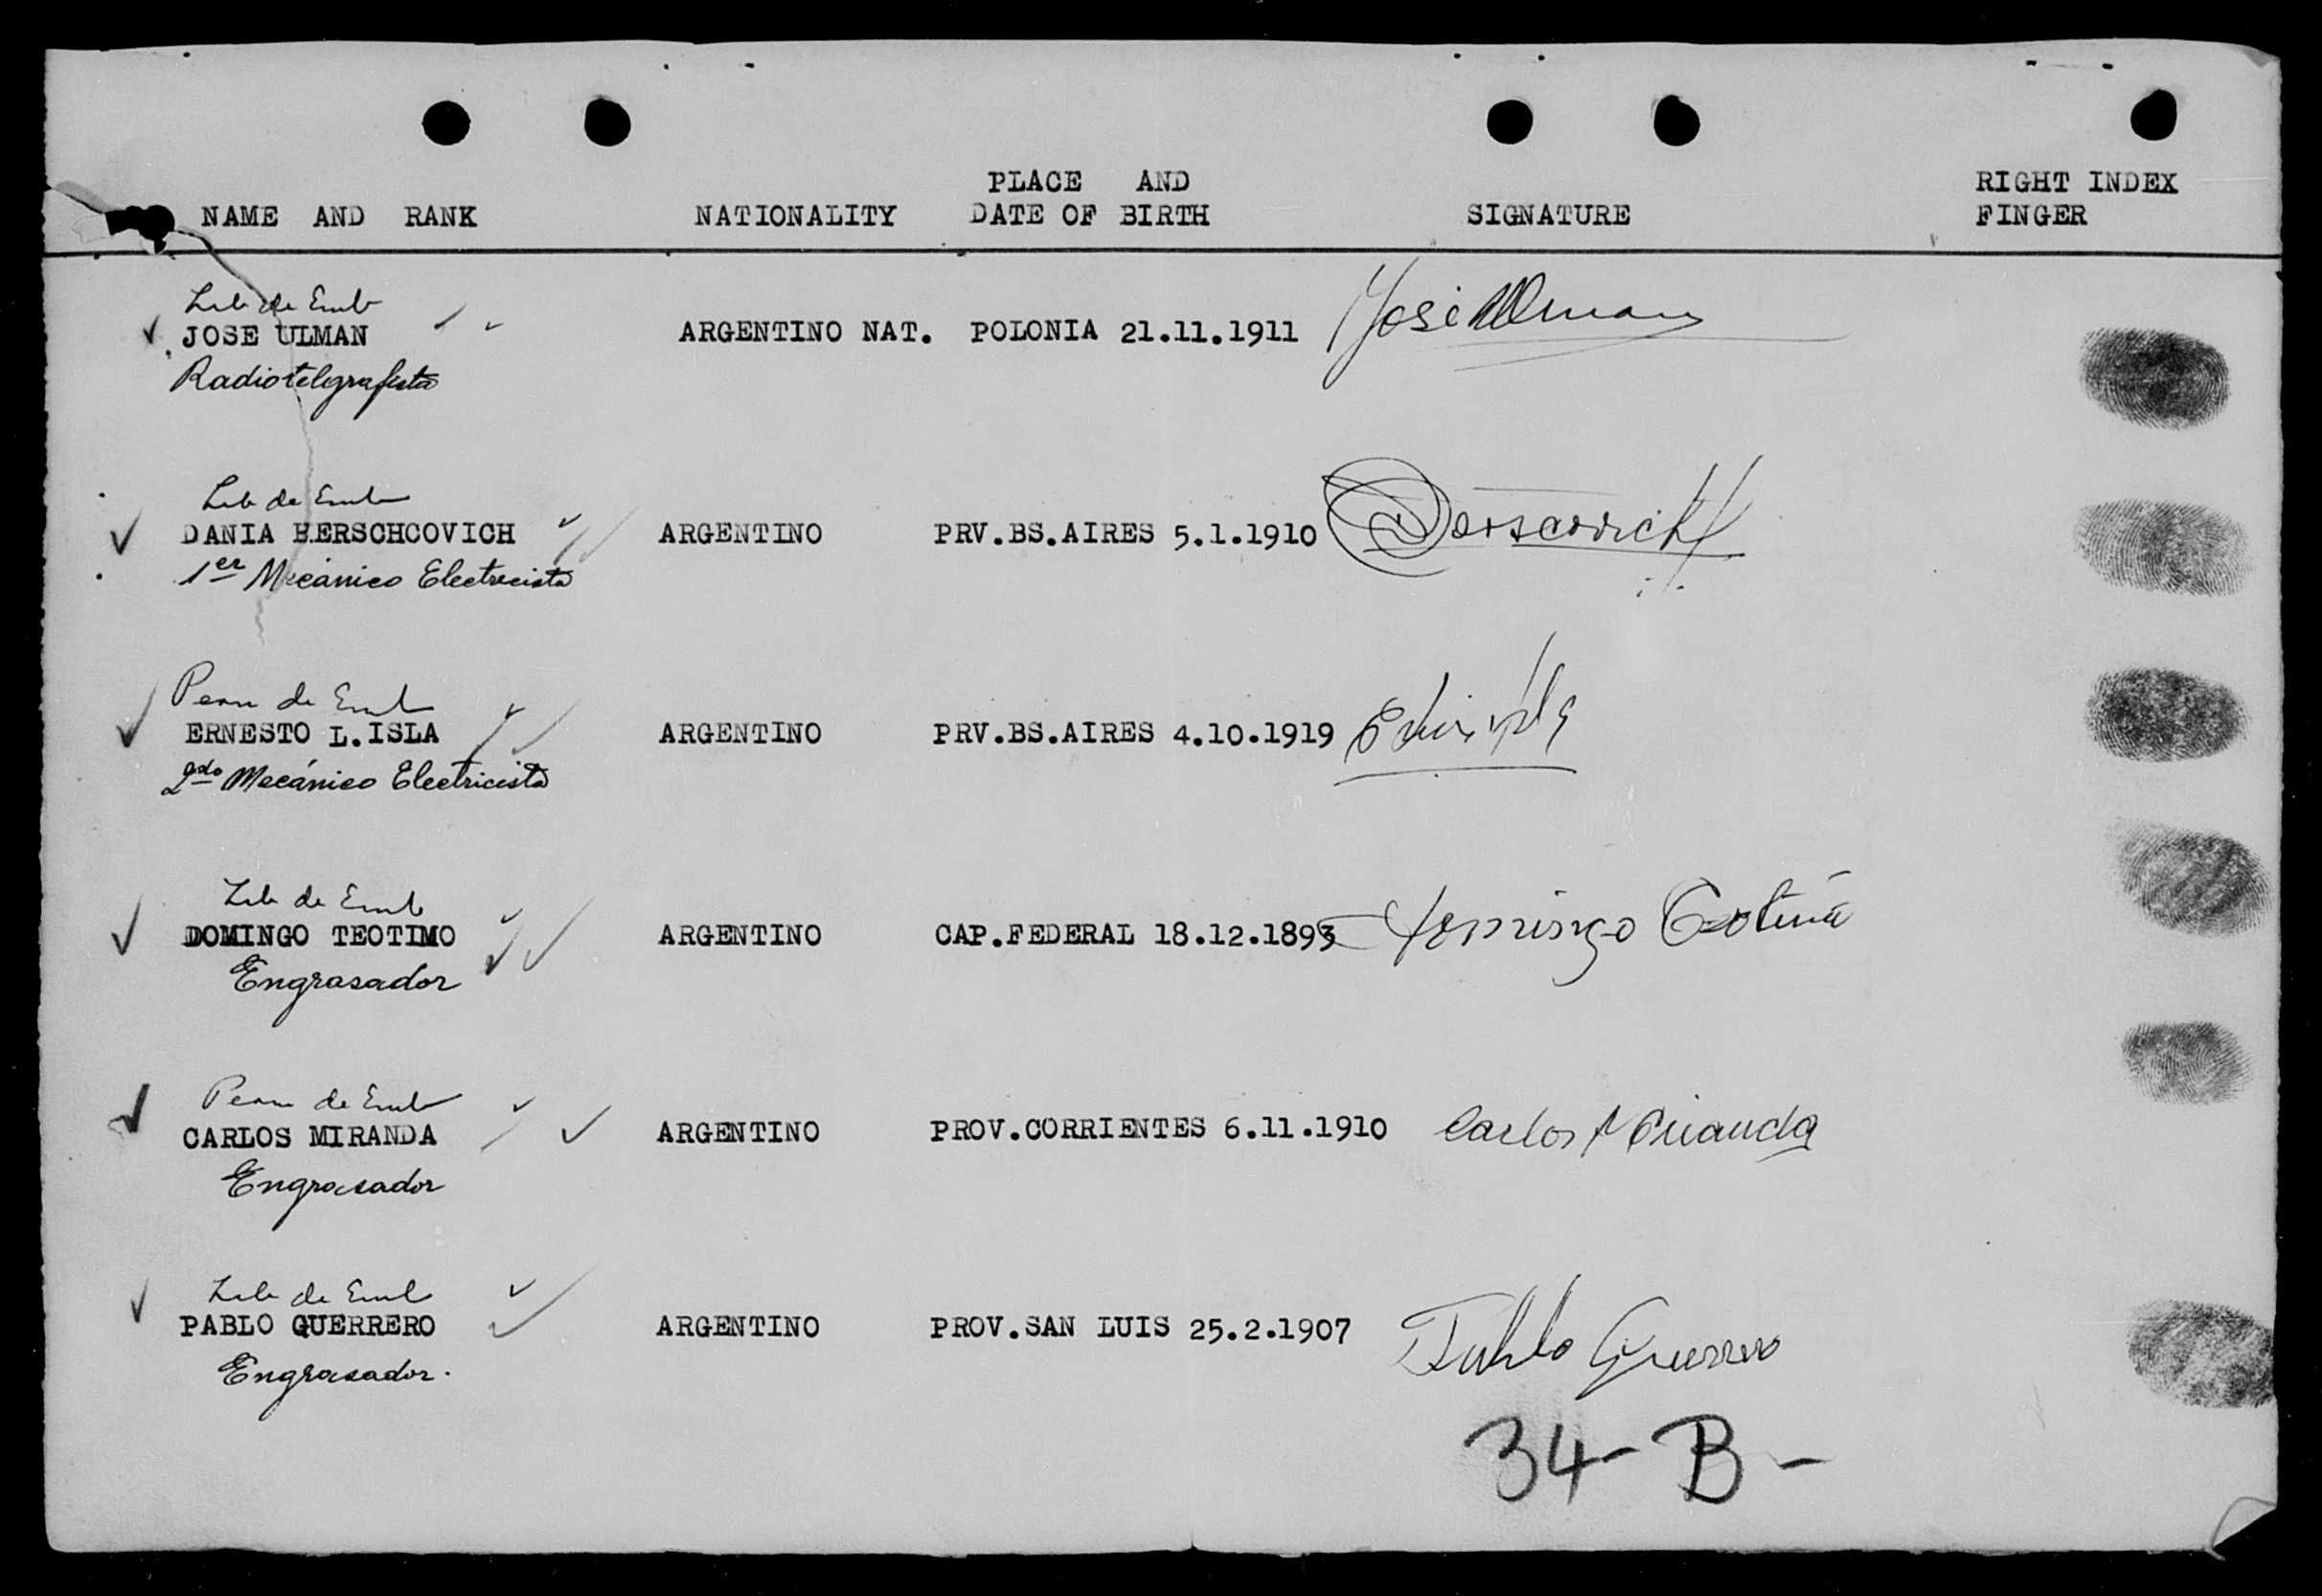 PLACE AND
RIGHT INDEX
NAME AND RANK NATIONALITY DATE OF BIRTH SIGNATURE FINGER
Lib de Emb
JOSE ULMAN ARGENTINO NAT. POLONIA 21.11.1911 Jose Ulman
Radiotelegrafista
Lib de Emb
DANIA BERSCHCOVICH ARGENTINO PRV.BS.AIRES 5.1.1910
1er Mecánico Electricista
Perm de Emb
ERNESTO L.ISLA ARGENTINO PRV.BS.AIRES 4.10.1919
2do Mecánico Electricista
Lib de Emb
DOMINGO TEOTIMO ARGENTINO CAP.FEDERAL 18.12.1893 Domingo
Engrasador
Perm de Emb
CARLOS MIRANDA ARGENTINO PROV.CORRIENTES 6.11.1910 Carlos Miranda
Engrasador
Lib de Emb
PABLO GUERRERO ARGENTINO PROV.SAN LUIS 25.2.1907 Pablo Guerrero
Engrasador.
34-B-